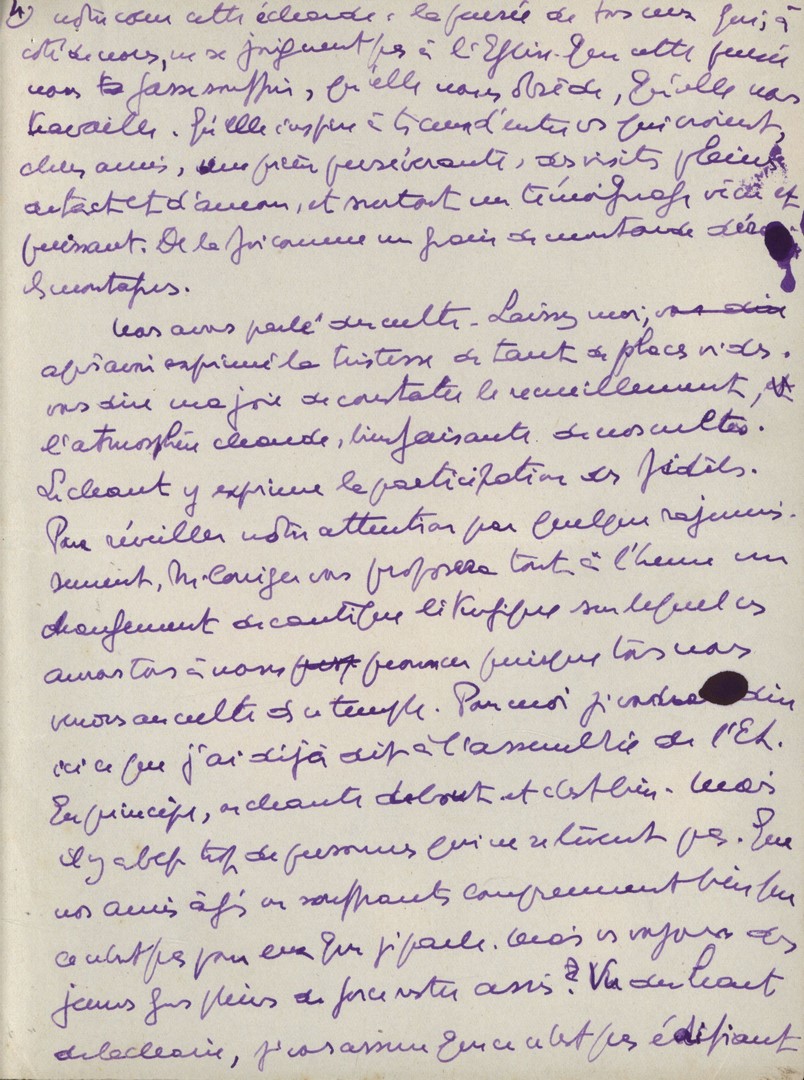 4) notre coeur cette écharde : la pensée de tous ceux qui, à
côté de nous, ne se joignent pas à l'Eglise. Que cette pensée
nous fasse souffrir, qu'elle nous obsède, qu'elle nous
travaille. Qu'elle inspire à ts ceux d'entre vs qui croient,
chers amis, une prière persévérante, des visites pleines
de tact et d'amour, et surtout un témoignage vécu et
puissant. De la foi comme un grain de moutarde
les montagnes.
Nous avons parlé du culte. Laissez moi, vous dire
après avoir exprimé la tristesse de tant de places vides.
vous dire ma joie de constater le recueillement, et
l'atmosphère chaude, bienfaisante de nos cultes.
Le chant y exprime la participation des fidèles.
Pour réveiller notre attention par quelque rajeunis-
sement, Mr vous proposera tout à l'heure un
changement de cantique liturgique sur lequel vs
aurons tous à nous prononcer puisque tous nous
venons au culte du temple. Pour moi je voudrais dire
ici ce que j'ai déjà dit à l'assemblée de l'Et.
En principe, on chante debout et c'est bien. Mais
il y a bcp trop de personnes qui ne se lèvent pas. Que
nos amis âgés ou souffrants comprennent bien que
ce n'est pas pour eux que je parle. Mais vs voyons des
jeunes gens pleins de force rester assis ? Vu du haut
de la chaire, je vous assure que ce n'est pas édifiant